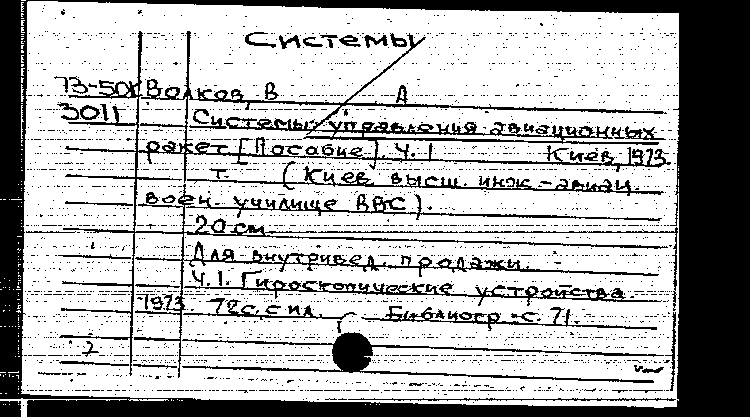 Системы
73-50к Волков, В А
3011 Системы управления авиационных
ракет [Пособие]. Ч. 1 Киев, 1973
т. (Киев высш. инж-авиац.
воен. училище ВВС).
20 см.
Для внутривед. продажи.
Ч.1. Гироскопические устройства.
1973. 72с. с ил. Библиогр.: с. 71.
2